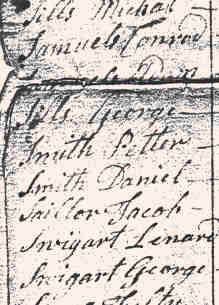 Sills Michal
Samuels Conrod
Sills George
Smith Petter
Smith Daniel
Saillor Jacob
Swigart Lenard
Swigart George